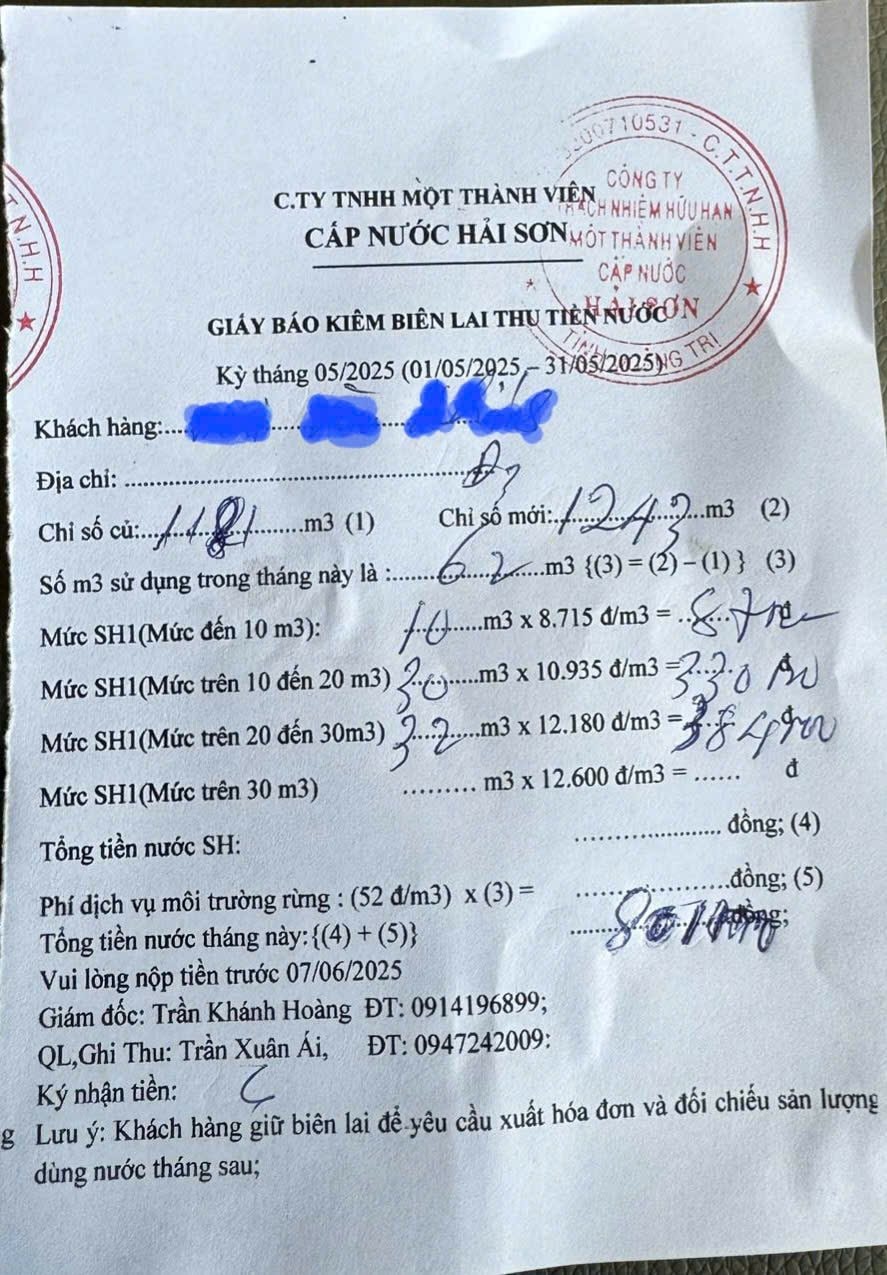 3200710531 - C.T.T.N.H.H
CÔNG TY
TRÁCH NHIỆM HỮU HẠN
MỘT THÀNH VIÊN
CẤP NƯỚC
HẢI SƠN
TỈNH QUẢNG TRỊ
T.N.H.H
C.TY TNHH MỘT THÀNH VIÊN
CẤP NƯỚC HẢI SƠN
GIẤY BÁO KIÊM BIÊN LAI THU TIỀN NƯỚC
Kỳ tháng 05/2025 (01/05/2025 – 31/05/2025)
Khách hàng:....
Địa chỉ: ........
Chỉ số củ:...1181........m3 (1) Chỉ số mới:..1243...m3 (2)
Số m3 sử dụng trong tháng này là :......62.....m3 {(3) = (2) – (1) } (3)
Mức SH1(Mức đến 10 m3): 10......m3 x 8.715 đ/m3 = ...... đ
Mức SH1(Mức trên 10 đến 20 m3) 30......m3 x 10.935 đ/m3 =...... đ
Mức SH1(Mức trên 20 đến 30m3) 32......m3 x 12.180 đ/m3 =...... đ
Mức SH1(Mức trên 30 m3) ......... m3 x 12.600 đ/m3 = ...... đ
Tổng tiền nước SH: ..................... đồng; (4)
Phí dịch vụ môi trường rừng : (52 đ/m3) x (3) = .....................đồng; (5)
Tổng tiền nước tháng này:{(4) + (5)} .....................đồng;
Vui lòng nộp tiền trước 07/06/2025
Giám đốc: Trần Khánh Hoàng ĐT: 0914196899;
QL,Ghi Thu: Trần Xuân Ái, ĐT: 0947242009:
Ký nhận tiền:
g Lưu ý: Khách hàng giữ biên lai để yêu cầu xuất hóa đơn và đối chiếu sản lượng
dùng nước tháng sau;